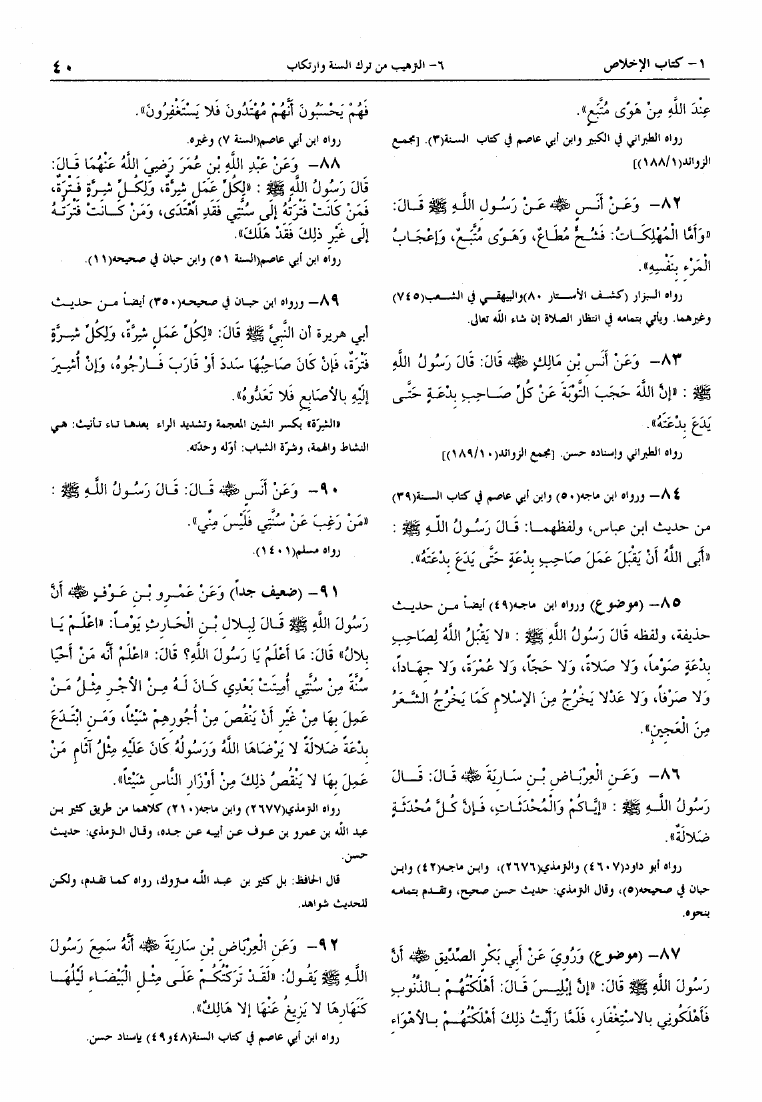 ١- كتاب الإخلاص
٦- الترهيب من ترك السنة وارتكاب
٤٠
عِنْدَ اللَّهِ مِنْ هَوًى مُتَّبَعٍ».
رواه الطبراني في الكبير وابن أبي عاصم في كتاب السنة(٣). [مجمع
الزوائد(١٨٨/١)]
٨٢- وَعَنْ أَنَسٍ ﷺ عَنْ رَسُولِ اللَّهِ ﷺ قَالَ:
«وَأَمَّا الْمُهْلِكَاتُ: فَشُحٌّ مُطَاعٌ، وَهَوًى مُتَّبَعٌ، وَإِعْجَابُ
الْمَرْءِ بِنَفْسِهِ».
رواه البزار (كشف الأستار ٨٠)والبيهقي في الشعب(٧٤٥)
وغيرهما. ويأتي بتمامه في انتظار الصلاة إن شاء الله تعالى.
٨٣- وَعَنْ أَنَسِ بْنِ مَالِكٍ ﷺ قَالَ: قَالَ رَسُولُ اللَّهِ
ﷺ : «إِنَّ اللَّهَ حَجَبَ التَّوْبَةَ عَنْ كُلِّ صَاحِبِ بِدْعَةٍ حَتَّى
يَدَعَ بِدْعَتَهُ».
رواه الطبراني وإسناده حسن. [مجمع الزوائد(١٨٩/١٠)]
٨٤- ورواه ابن ماجه(٥٠) وابن أبي عاصم في كتاب السنة(٣٩)
من حديث ابن عباس، ولفظهما: قَالَ رَسُولُ اللَّهِ ﷺ :
«أَبَى اللَّهُ أَنْ يَقْبَلَ عَمَلَ صَاحِبِ بِدْعَةٍ حَتَّى يَدَعَ بِدْعَتَهُ».
٨٥- (موضوع) ورواه ابن ماجه(٤٩) أيضاً من حديث
حذيفة، ولفظه قَالَ رَسُولُ اللَّهِ ﷺ : «لا يَقْبَلُ اللَّهُ لِصَاحِبِ
بِدْعَةٍ صَوْماً، وَلا صَلاةً، وَلا حَجّاً، وَلا عُمْرَةً، وَلا جِهَاداً،
وَلا صَرْفاً، وَلا عَدْلا يَخْرُجُ مِنَ الإِسْلامِ كَمَا يَخْرُجُ الشَّعَرُ
مِنَ الْعَجِينِ».
٨٦- وَعَنِ الْعِرْبَاضِ بْنِ سَارِيَةَ ﷺ قَالَ: قَالَ
رَسُولُ اللَّهِ ﷺ : «إِيَّاكُمْ وَالْمُحْدَثَاتِ، فَإِنَّ كُلَّ مُحْدَثَةٍ
ضَلالَةٌ».
رواه أبو داود(٤٦٠٧) والترمذي(٢٦٧٦)، وابن ماجه(٤٢) وابن
حبان في صحيحه(٥)، وقال الترمذي: حديث حسن صحيح، وتقدم بتمامه
بنحوه.
٨٧- (موضوع) وَرُوِيَ عَنْ أَبِي بَكْرٍ الصِّدِّيقِ ﷺ أَنَّ
رَسُولَ اللَّهِ ﷺ قَالَ: «إِنَّ إِبْلِيسَ قَالَ: أَهْلَكْتُهُمْ بِالذُّنُوبِ
فَأَهْلَكُونِي بِالاسْتِغْفَارِ، فَلَمَّا رَأَيْتُ ذلِكَ أَهْلَكْتُهُمْ بِالأَهْوَاءِ
فَهُمْ يَحْسَبُونَ أَنَّهُمْ مُهْتَدُونَ فَلا يَسْتَغْفِرُونَ».
رواه ابن أبي عاصم(السنة ٧) وغيره.
٨٨- وَعَنْ عَبْدِ اللَّهِ بْنِ عُمَرَ رَضِيَ اللَّهُ عَنْهُمَا قَالَ:
قَالَ رَسُولُ اللَّهِ ﷺ : «لِكُلِّ عَمَلٍ شِرَّةٌ، وَلِكُلِّ شِرَّةٍ فَتْرَةٌ،
فَمَنْ كَانَتْ فَتْرَتُهُ إِلَى سُنَّتِي فَقَدِ اهْتَدَى، وَمَنْ كَانَتْ فَتْرَتُهُ
إِلَى غَيْرِ ذلِكَ فَقَدْ هَلَكَ».
رواه ابن أبي عاصم(السنة ٥١) وابن حبان في صحيحه(١١).
٨٩- ورواه ابن حبان في صحيحه(٣٥٠) أيضاً من حديث
أبي هريرة أن النَّبِيَّ ﷺ قَالَ: «لِكُلِّ عَمَلٍ شِرَّةٌ، وَلِكُلِّ شِرَّةٍ
فَتْرَةٌ، فَإِنْ كَانَ صَاحِبُهَا سَدَدَ أَوْ قَارَبَ فَارْجُوهُ، وَإِنْ أُشِيرَ
إِلَيْهِ بِالأَصَابِعِ فَلا تَعُدُّوهُ».
«الشِّرَّة» بكسر الشين المعجمة وتشديد الراء بعدها تاء تأنيث: هي
النشاط والهمة، وشرّة الشباب: أوّله وحدّته.
٩٠- وَعَنْ أَنَسٍ ﷺ قَالَ: قَالَ رَسُولُ اللَّهِ ﷺ :
«مَنْ رَغِبَ عَنْ سُنَّتِي فَلَيْسَ مِنِّي».
رواه مسلم(١٤٠١).
٩١- (ضعيف جداً) وَعَنْ عَمْرِو بْنِ عَوْفٍ ﷺ أَنَّ
رَسُولَ اللَّهِ ﷺ قَالَ لِبِلالِ بْنِ الْحَارِثِ يَوْماً: «اعْلَمْ يَا
بِلالُ» قَالَ: مَا أَعْلَمُ يَا رَسُولَ اللَّهِ؟ قَالَ: «اعْلَمْ أَنَّه مَنْ أَحْيَا
سُنَّةً مِنْ سُنَّتِي أُمِيتَتْ بَعْدِي كَانَ لَهُ مِنْ الأَجْرِ مِثْلُ مَنْ
عَمِلَ بِهَا مِنْ غَيْرِ أَنْ يَنْقُصَ مِنْ أُجُورِهِمْ شَيْئاً، وَمَنِ ابْتَدَعَ
بِدْعَةَ ضَلالَةً لا يَرْضَاهَا اللَّهُ وَرَسُولُهُ كَانَ عَلَيْهِ مِثْلُ آثَامِ مَنْ
عَمِلَ بِهَا لا يَنْقُصُ ذلِكَ مِنْ أَوْزَارِ النَّاسِ شَيْئاً».
رواه الترمذي(٢٦٧٧) وابن ماجه(٢١٠) كلاهما من طريق كثير بن
عبد الله بن عمرو بن عوف عن أبيه عن جده، وقال الترمذي: حديث
حسن.
قال الحافظ: بل كثير بن عبد الله متروك، رواه كما تقدم، ولكن
للحديث شواهد.
٩٢- وَعَنِ الْعِرْبَاضِ بْنِ سَارِيَةَ ﷺ أَنَّهُ سَمِعَ رَسُولَ
اللَّهِ ﷺ يَقُولُ: «لَقَدْ تَرَكْتُكُمْ عَلَى مِثْلِ الْبَيْضَاءِ لَيْلُهَا
كَنَهَارِهَا لا يَزِيغُ عَنْهَا إلا هَالِكٌ».
رواه ابن أبي عاصم في كتاب السنة(٤٨و٤٩) بإسناد حسن.